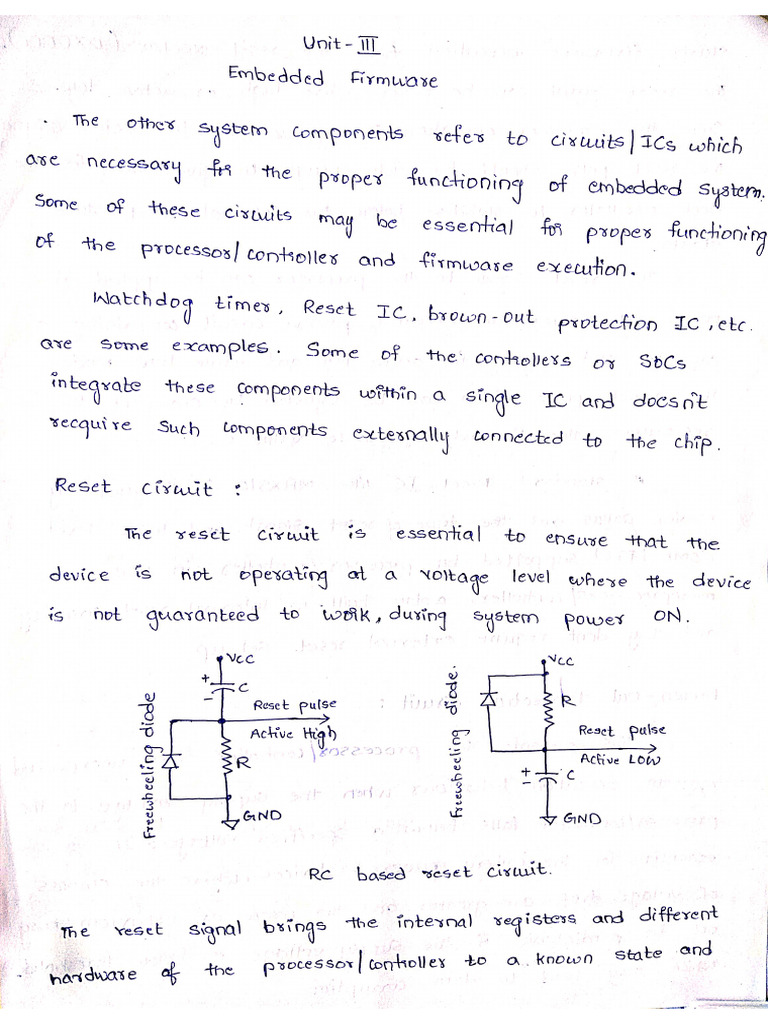 Unit - III
Embedded Firmware
. The other system components refer to circuits/ICs which
are necessary for the proper functioning of embedded system.
Some of these circuits may be essential for proper functioning
of the processor/controller and firmware execution.
Watchdog timer, Reset IC, brown-out protection IC, etc.
are some examples. Some of the controllers or SbCs
integrate these components within a single IC and doesn't
recquire such components externally connected to the chip.
Reset circuit :
The reset circuit is essential to ensure that the
device is not operating at a voltage level where the device
is not guaranteed to work, during system power ON.
VCC
+
-
C
Reset pulse
Active High
R
Freewheeling diode
GND
VCC
Freewheeling diode.
R
Reset pulse
Active LOW
+
-
C
GND
RC based reset circuit.
The reset signal brings the internal registers and different
hardware of the processor/controller to a known state and